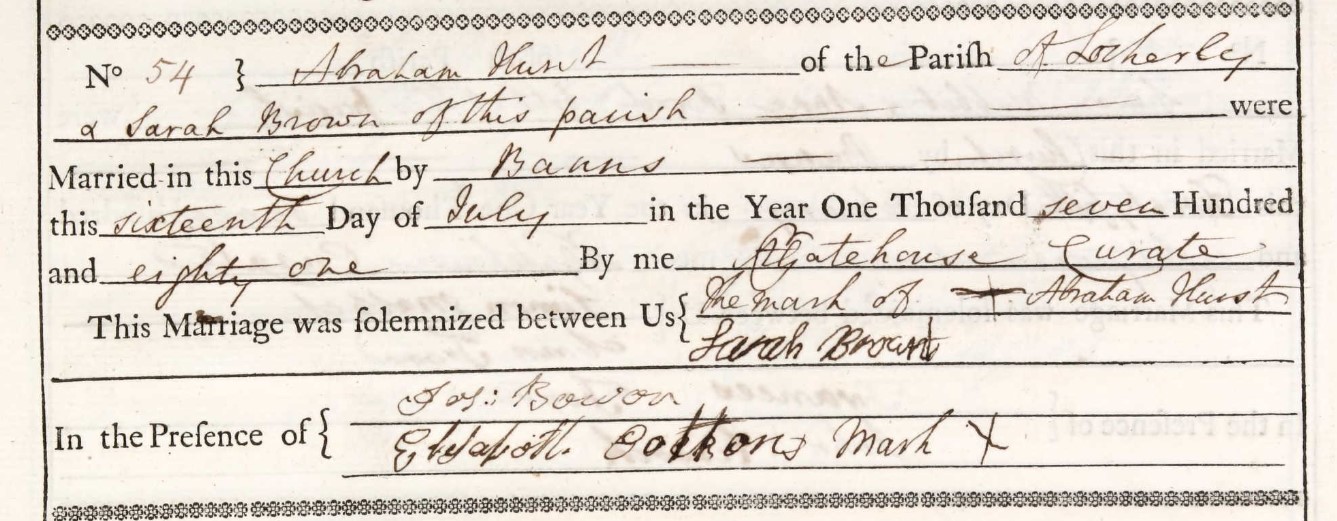 No 54 } Abraham Hurst of the Pariſh of Lockerley
& Sarah Brown of this parish were
Married in this Church by Banns
this sixteenth Day of July in the Year One Thouſand seven Hundred
and eighty one By me Gatehouse Curate
This Marriage was ſolemnized between Us { The mark of + Abraham Hurst
Sarah Brown
In the Preſence of { Jos: Bowon
Elisabeth Cottons Mark X